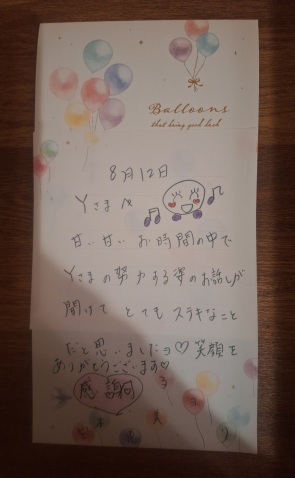 Balloons
that bring good luck
8月12日
Yさまへ
甘い甘いお時間の中で
Yさまの努力する姿のお話しが
聞けてとてもステキなこと
だと思いましたっ♡笑顔を
ありがとうございます♡
感謝